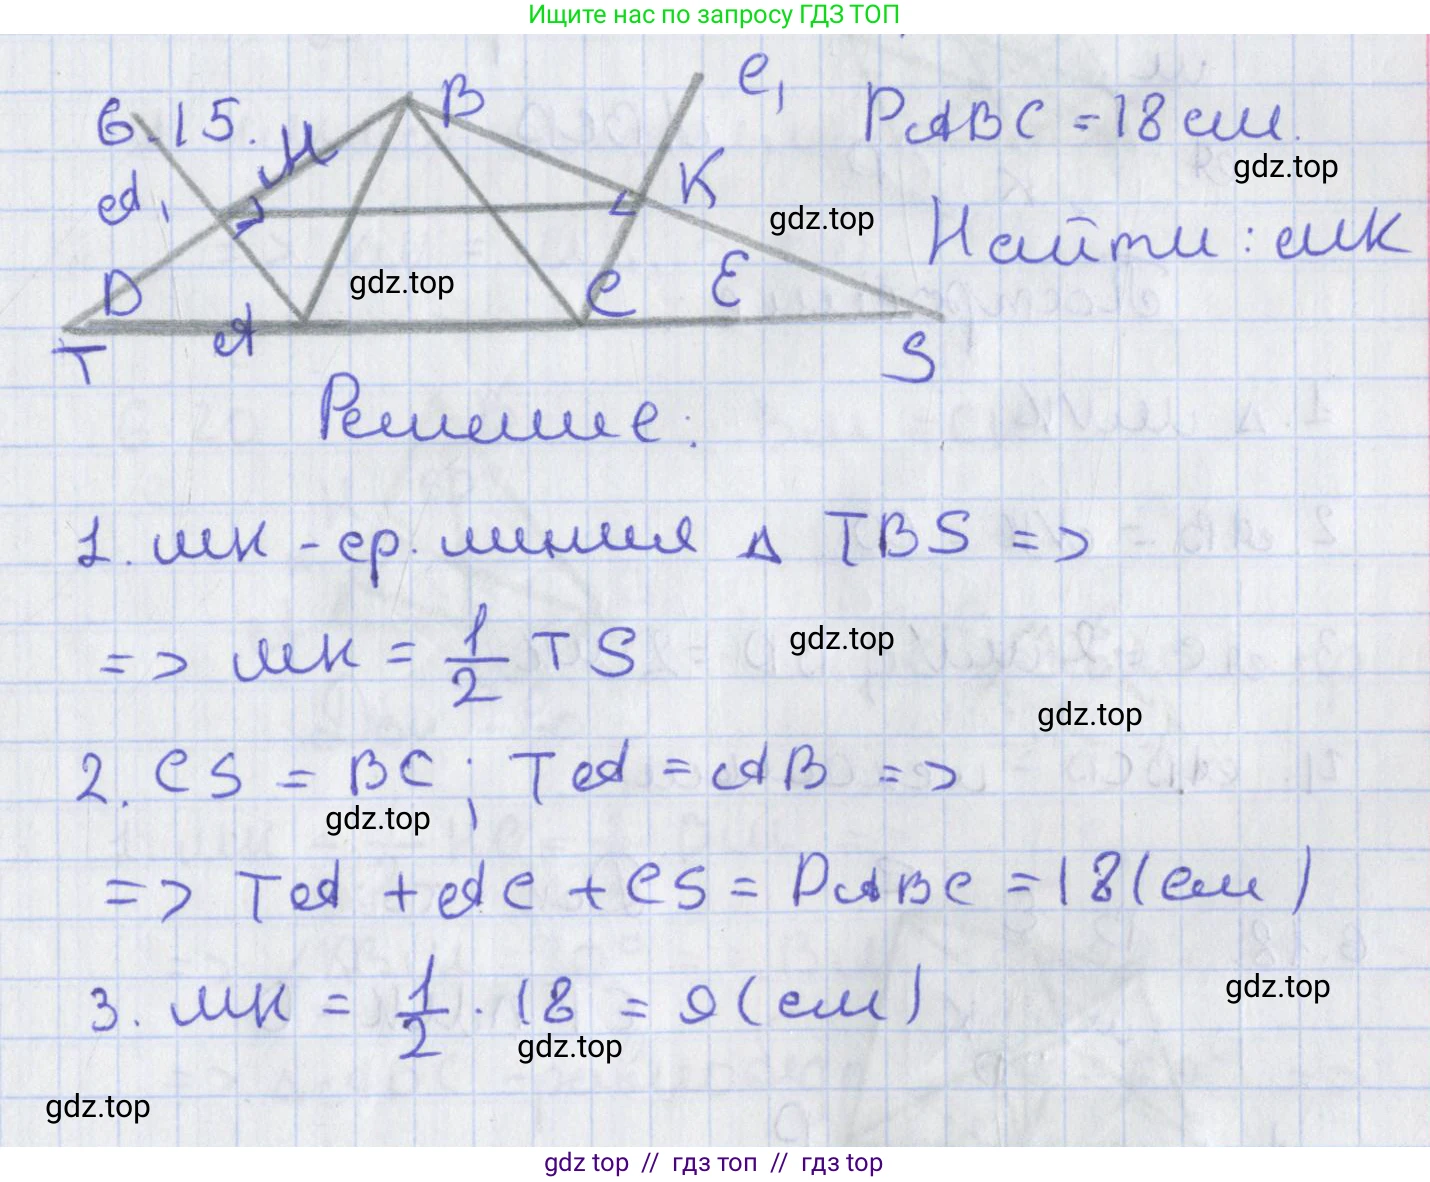 Ищите нас по запросу ГДЗ ТОП
6.15.
B
C₁
P ABC = 18 см.
gdz.top
M
A₁
K
gdz.top
Найти: MK
D
gdz.top
C
E
T
A
S
Решение:
1. MK - ср. линия Δ TBS =>
=> MK = 1/2 TS
gdz.top
gdz.top
2. CS = BC; TA = AB =>
gdz.top
=> TA + AC + CS = P ABC = 18 (см)
3. MK = 1/2 · 18 = 9 (см)
gdz.top
gdz.top
gdz.top
gdz top // гдз топ // гдз top